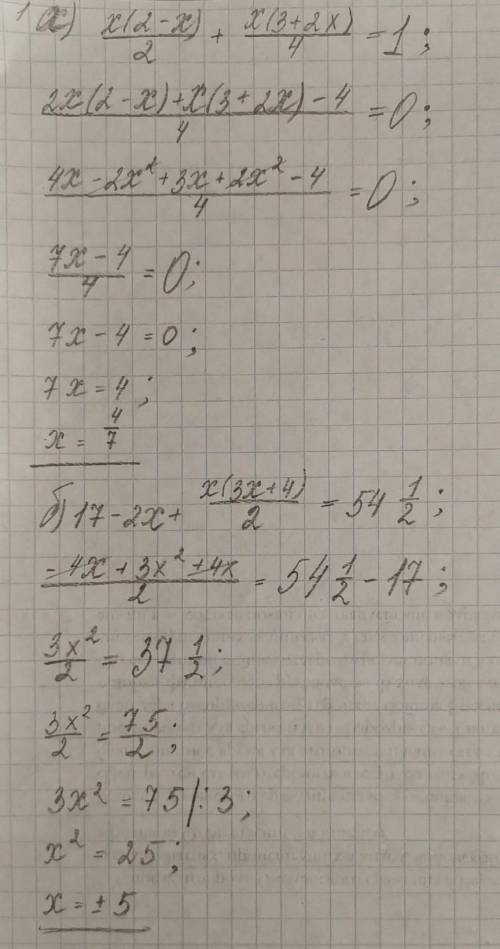 1 а) x(2-x)/2 + x(3+2x)/4 = 1;
2x(2-x)+x(3+2x)-4/4 = 0;
4x-2x²+3x+2x²-4/4 = 0;
7x-4/4 = 0;
7x-4=0;
7x=4;
x = 4/7
б) 17-2x+ x(3x+4)/2 = 54 1/2;
-4x+3x²+4x/2 = 54 1/2 - 17;
3x²/2 = 37 1/2;
3x²/2 = 75/2;
3x² = 75 /: 3;
x² = 25;
x = ±5